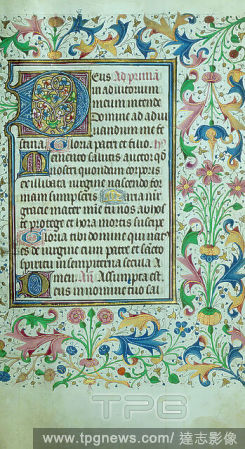 Deus Ad primā
in adiutorium
meum intende
Domine ad adiu
uandum me fe
stina Gloria patri et filio. hy
Memento salutis auctor q
nostri quondam corporis
ex illibata uirgine nascendo for
mam sumpseris Maria mr̄
gracie mater mie tu nos ab hos
te protege et hora mortis suscipe
Gloria tibi domine qui natus
es de uirgine cum patre et sc̄to
spiritu in sempiterna secula
Assumpta est
Deus in nomine tuo sal
TPG
www.tpgnews.com/達志影像